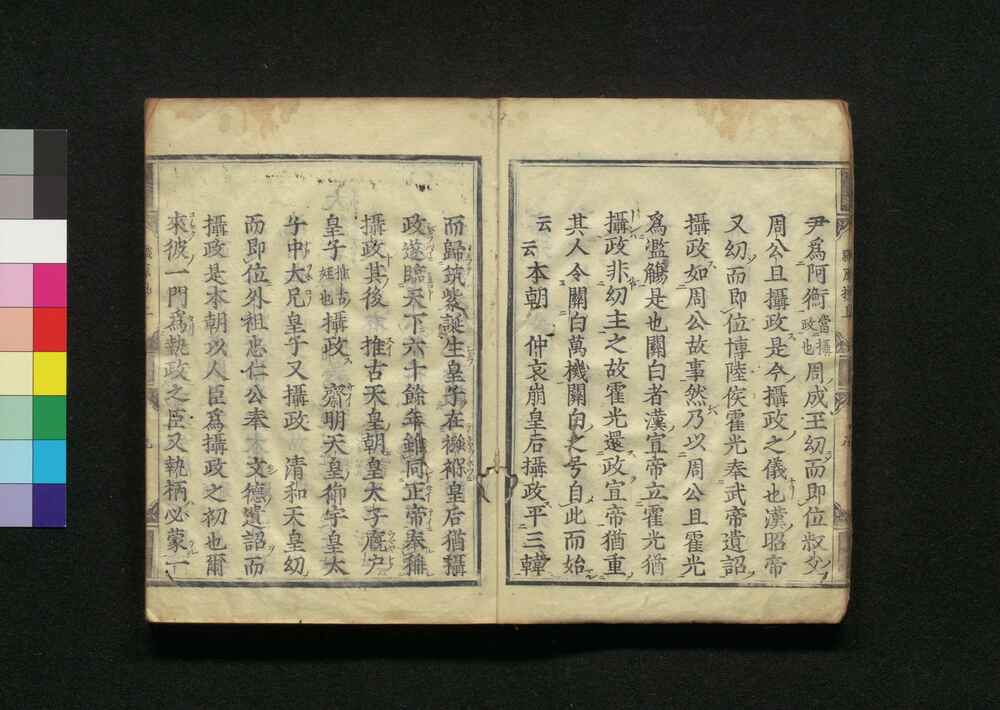 尹爲阿衡當攝政也周成王幼而即位叔父
周公旦攝政是今攝政之儀也漢昭帝
又幼而即位博陸侯霍光奉武帝遺詔
攝政如周公故事然乃以周公旦霍光
爲濫觴是也關白者漢宣帝立霍光猶
攝政非幼主之故霍光還政宣帝猶重
其人令關白萬機關白之号自此而始
云云本朝仲哀崩皇后攝政平三韓
而歸筑紫誕生皇子在襁褓皇后猶攝
政遂臨天下六十餘年雖同正帝奉稱
攝政其後推古天皇朝皇太子廐户
皇子推古姪也攝政齊明天皇御宇皇太
子中大兄皇子又攝政清和天皇幼
而即位外祖忠仁公奉文德遺詔而
攝政是本朝以人臣爲攝政之初也爾
來彼一門爲執政之臣又執柄必蒙一